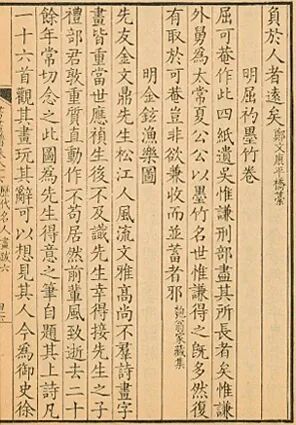 負於人者遠矣鄭文康平橋藁
明屈礿墨竹卷
屈可菴作此四紙遺吳惟謙刑部盡其所長者矣惟謙
外舅爲太常夏公公以墨竹名世惟謙得之旣多然復
有取於可菴豈非欲兼收而並蓄者邪匏翁家藏集
明金鉉漁樂圖
先友金文鼎先生松江人風流文雅高尚不羣詩畫字
畫皆重當世應禎生後不及識先生幸得接先生之子
禮部君敦重質直動作不苟居然前輩風致逝去二十
餘年常切念之此圖爲先生得意之筆自題其上詩凡
一十六首觀其畫玩其辭可以想見其人今爲御史徐
歷代名人畫跋六